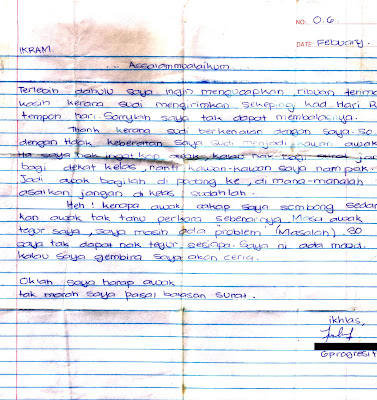 NO. 06.
DATE Febuary.
IKRAM.
Assalammualaikum...
Terlebih dahulu saya ingin mengucapkan ribuan terima
kasih kerana sudi mengirimkan sekeping kad Hari R
tempoh hari. Sorrylah saya tak dapat membalasnya.
Thank kerana sudi berkenalan dengan saya. So
dengan tidak keberatan saya sudi menjadi kawan awak
saya nak ingatkan awak, kalau nak bagi surat jan
bagi dekat kelas, nanti kawan-kawan saya nampak.
Jadi awak bagilah di padang ke, di mana-manalah
asalkan jangan di kelas sudahlah.
Heh! kenapa awak cakap saya sombong sedan
kan awak tak tahu perkara sebenarnya. Masa awak
tegur saya, saya masih ada problem (Masalah). So
saya tak dapat nak tegur sesiapa. Saya ni ada mood.
kalau saya gembira saya akan ceria.
Oklah saya harap awak
tak marah saya pasal balasan surat.
ikhlas,
6progresif